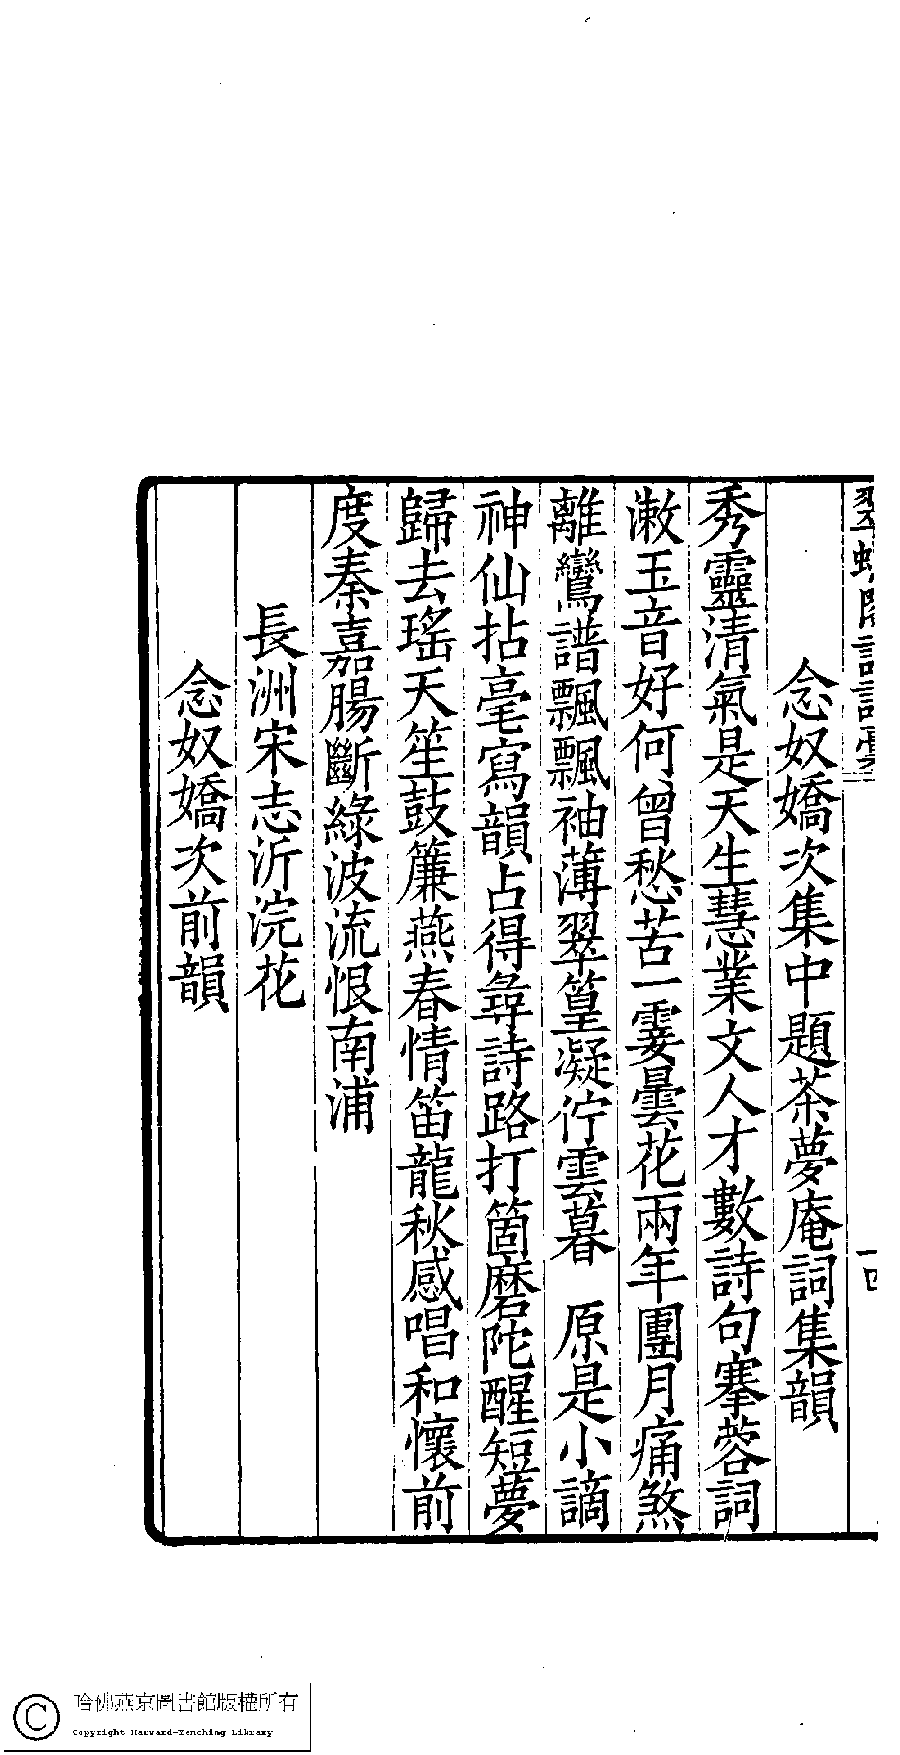 念奴嬌次集中題茶夢庵詞集韻
秀靈清氣是天生慧業文人才數詩句搴蓉詞
潄玉音好何曾愁苦一霎曇花兩年團月痛煞
離鸞譜飄飄袖薄翠篁凝佇雲暮 原是小謫
神仙拈毫寫韻占得尋詩路打箇磨陀醒短夢
歸去瑤天笙鼓簾燕春情笛龍秋感唱和懷前
度秦嘉腸斷綠波流恨南浦
長洲宋志沂浣花
念奴嬌次前韻
一四
哈佛燕京圖書館版權所有
Copyright Harvard-Yenching Library